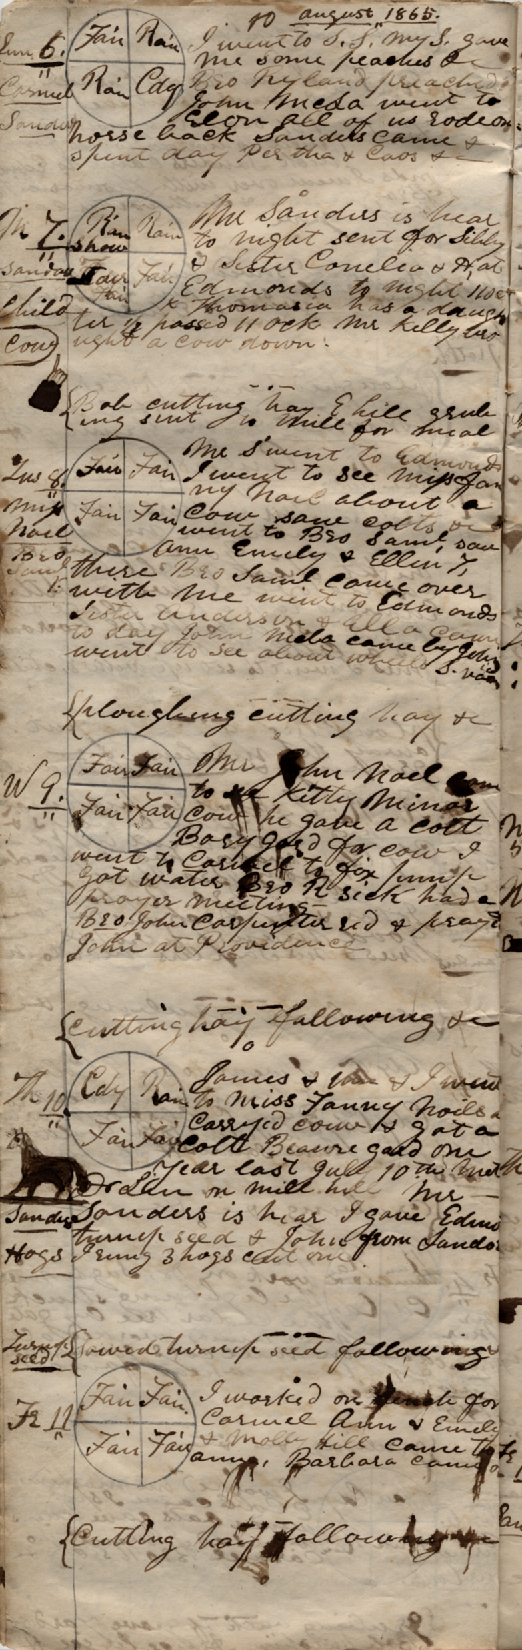 10 august, 1865.
Sun 6. Fair Rain I went to S. S. My S. gave
me some peaches &c
Carmel Rain Cdy Bro Hyland preached
John Meda went to
Sanders Elon all of us rode on
horse back Sanders came &
spent day &c
M 7. Rain Rain Mr Sanders is hear
show to night sent for Sibby
Sanders Fair Fair & Sister Cornelia & at
Fair Edmonds to night
child & Thomasia has a daugh
ter passed 11 ock Mr Kelly bro
Cow ught a cow down.
{Bob cutting hay Chile grub
ing sent to Mill for meal
Tus 8. Fair Fair Me S went to Edmonds
I went to see Miss Fan
Miss ny Noel about a
Noel Fair Fair cow saw colts &c
Bro went to Bro Saml saw
Saml Ann Emely & Ellin T,
there Bro Saml came over
with me went to Edmonds
Sister Anderson & all came
to day John Meda came by John
went to see about wheat
{ploughing cutting hay &c
W 9. Fair Fair Mr John Noel came
to Kitty Minor
Fair Fair cow he gave a colt
for cow I
went to Carmel to fix pump
got water Bro R sick had a
prayer meeting
Bro John Carpenter &
John at Providence
{cutting hay following &c
Th 10 Cdy Rain James & & I went
to Miss Fanny Noels
Fair Fair carryed cow & got a
Colt one
year last July 10th
on mill hill Mr
Sanders Sanders is hear I gave Edmo
turnip seed & John from Sando
Hogs I 3 hogs cut one
Turnip {sowed turnip seed following
seed
Fr 11 Fair Fair I worked on bench for
Carmel Ann & Emely
Fair Fair & Molly Hill came
Barbara came
{Cutting hay following &c